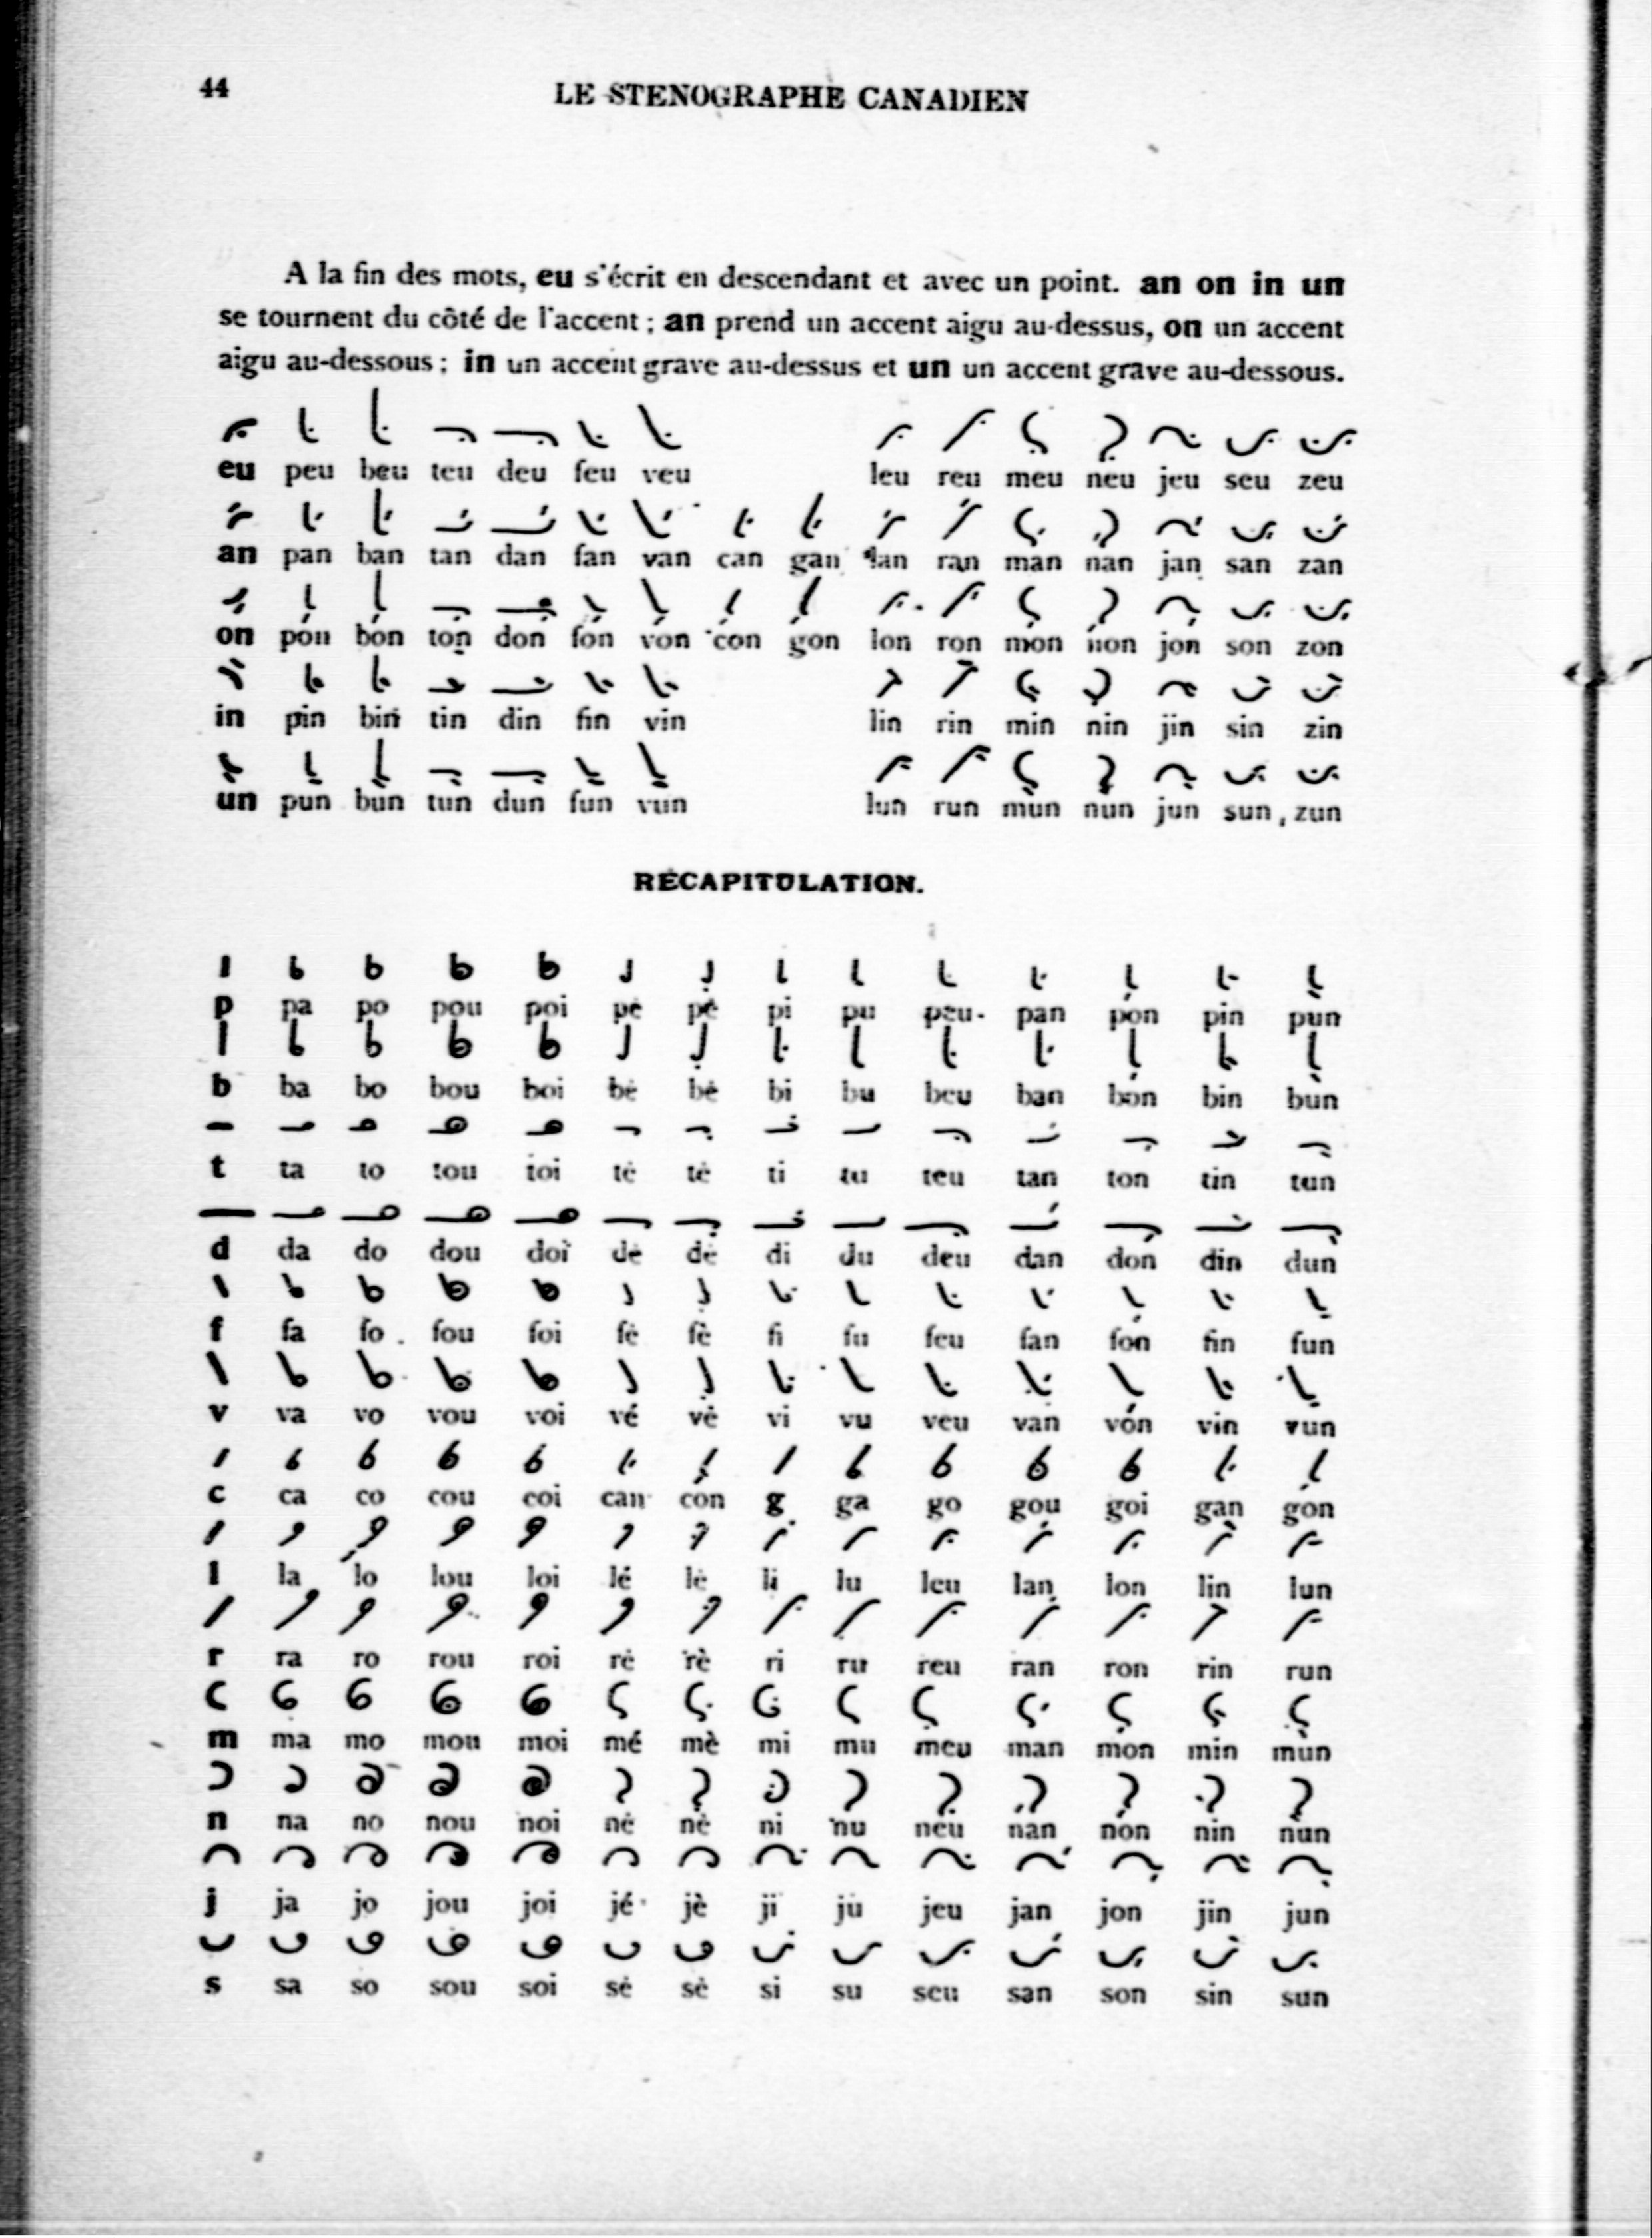 44
LE STENOGRAPHE CANADIEN
A la fin des mots, eu s'écrit en descendant et avec un point. an on in un
se tournent du côté de l'accent ; an prend un accent aigu au-dessus, on un accent
aigu au-dessous ; in un accent grave au-dessus et un un accent grave au-dessous.
eu peu beu teu deu feu veu leu reu meu neu jeu seu zeu
an pan ban tan dan fan van can gan lan ran man nan jan san zan
on pon bon ton don fon von con gon lon ron mon non jon son zon
in pin bin tin din fin vin lin rin min nin jin sin zin
un pun bun tun dun fun vun lun run mun nun jun sun, zun
RÉCAPITULATION.
p pa po pou poi pé pè pi pu peu pan pon pin pun
b ba bo bou boi bé bè bi bu beu ban bon bin bun
t ta to tou toi té tè ti tu teu tan ton tin tun
d da do dou doi dé dè di du deu dan don din dun
f fa fo fou foi fé fè fi fu feu fan fon fin fun
v va vo vou voi vé vè vi vu veu van von vin vun
c ca co cou coi can con g ga go gou goi gan gon
l la lo lou loi lé lè li lu leu lan lon lin lun
r ra ro rou roi ré rè ri ru reu ran ron rin run
m ma mo mou moi mé mè mi mu meu man mon min mun
n na no nou noi né nè ni nu neu nan non nin nun
j ja jo jou joi jé jè ji ju jeu jan jon jin jun
s sa so sou soi sé sè si su seu san son sin sun